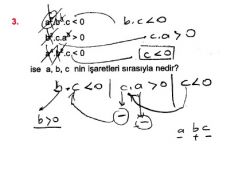 3.
b.c < 0 b.c < 0
b.c.a > 0 c.a > 0
c < 0 c < 0
ise a, b, c nin işaretleri sırasıyla nedir?
b.c < 0 | c.a > 0 | c < 0
b > 0 - -
a b c
- + -